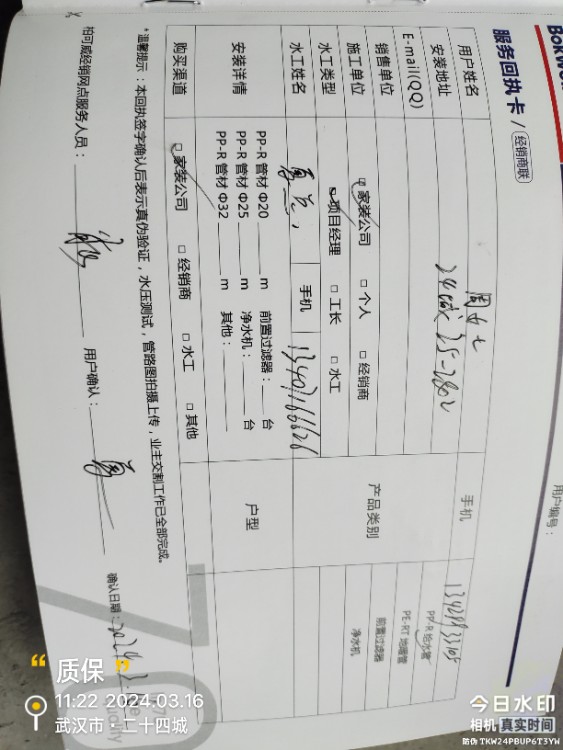 服务回执卡 / 经销商联
用户编号：
用户姓名 周女士 手机
安装地址 24城 35-2802
E-mail(QQ)
销售单位 产品类别 PP-R 给水管
PE-RT 地暖管
前置过滤器
净水机
施工单位 家装公司 □ 个人 □ 经销商
水工类型 项目经理 □ 工长 □ 水工
水工姓名 手机 13407166626
安装详情 PP-R 管材 Φ20 m 前置过滤器： 台 户型
PP-R 管材 Φ25 m 净水机： 台
PP-R 管材 Φ32 m 其他：
购买渠道 □ 家装公司 □ 经销商 □ 水工 □ 其他
*温馨提示：本回执签字确认后表示真伪验证，水压测试，管路图拍摄上传，业主交割工作已全部完成。
柏可威经销网点服务人员： 用户确认： 确认日期：2024.3.
“ 质保 ”
11:22 2024.03.16
武汉市·二十四城
今日水印
相机 真实时间
防伪 TKW24PBUP6T3YW